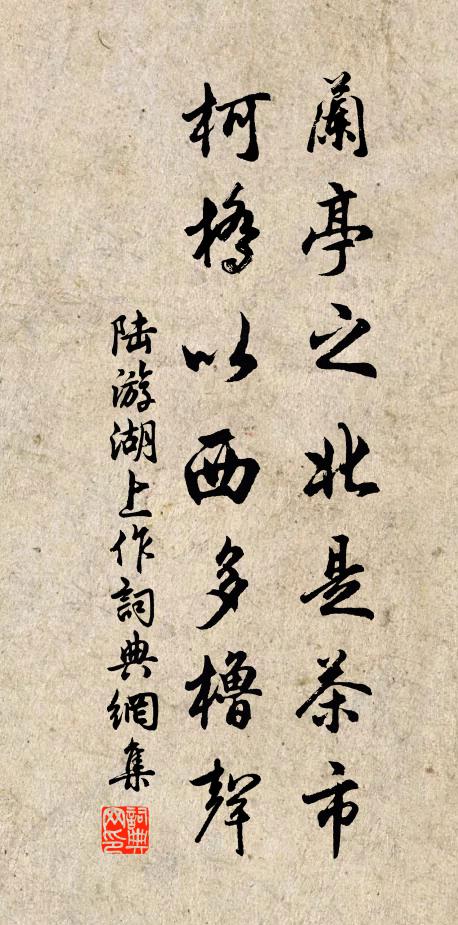 蘭亭之北是茶市
柯橋以西多櫓聲
陆游湖上作詞典網集
詞典网印